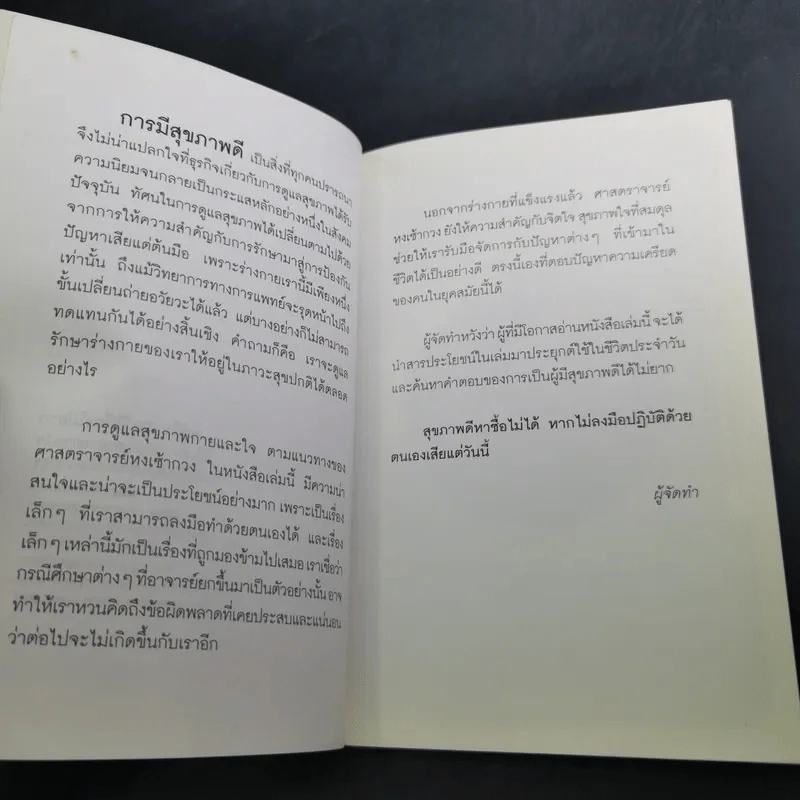 การมีสุขภาพดี เป็นสิ่งที่ทุกคนปรารถนา
จึงไม่น่าแปลกใจที่ธุรกิจเกี่ยวกับการดูแลสุขภาพได้รับ
ความนิยมจนกลายเป็นกระแสหลักอย่างหนึ่งในสังคม
ปัจจุบัน ทัศนในการดูแลสุขภาพได้เปลี่ยนตามไปด้วย
จากการให้ความสำคัญกับการรักษามาสู่การป้องกัน
ปัญหาเสียแต่ต้นมือ เพราะร่างกายเรานี้มีเพียงหนึ่ง
เท่านั้น ถึงแม้วิทยาการทางการแพทย์จะรุดหน้าไปถึง
ขั้นเปลี่ยนถ่ายอวัยวะได้แล้ว แต่บางอย่างก็ไม่สามารถ
ทดแทนกันได้อย่างสิ้นเชิง คำถามก็คือ เราจะดูแล
รักษาร่างกายของเราให้อยู่ในภาวะสุขปกติได้ตลอด
อย่างไร
การดูแลสุขภาพกายและใจ ตามแนวทางของ
ศาสตราจารย์หงเช้ากวง ในหนังสือเล่มนี้ มีความน่า
สนใจและน่าจะเป็นประโยชน์อย่างมาก เพราะเป็นเรื่อง
เล็กๆ ที่เราสามารถลงมือทำด้วยตนเองได้ และเรื่อง
เล็กๆ เหล่านี้มักเป็นเรื่องที่ถูกมองข้ามไปเสมอ เราเชื่อว่า
กรณีศึกษาต่างๆ ที่อาจารย์ยกขึ้นมาเป็นตัวอย่างนั้น อาจ
ทำให้เราหวนคิดถึงข้อผิดพลาดที่เคยประสบและแน่นอน
ว่าต่อไปจะไม่เกิดขึ้นกับเราอีก
นอกจากร่างกายที่แข็งแรงแล้ว ศาสตราจารย์
หงเช้ากวง ยังให้ความสำคัญกับจิตใจ สุขภาพใจที่สมดุล
ช่วยให้เรารับมือจัดการกับปัญหาต่างๆ ที่เข้ามาใน
ชีวิตได้เป็นอย่างดี ตรงนี้เองที่ตอบปัญหาความเครียด
ของคนในยุคสมัยนี้ได้
ผู้จัดทำหวังว่า ผู้ที่มีโอกาสอ่านหนังสือเล่มนี้ จะได้
นำสารประโยชน์ในเล่มมาประยุกต์ใช้ในชีวิตประจำวัน
และค้นหาคำตอบของการเป็นผู้มีสุขภาพดีได้ไม่ยาก
สุขภาพดีหาซื้อไม่ได้ หากไม่ลงมือปฏิบัติด้วย
ตนเองเสียแต่วันนี้
ผู้จัดทำ